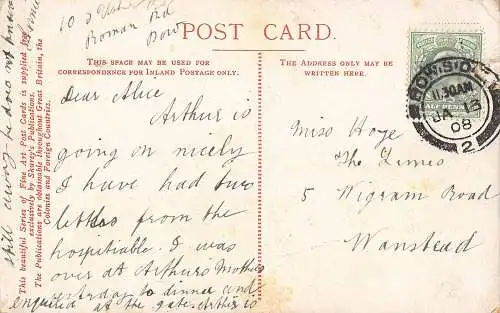 10 3
Roman Rd
Bow
POST CARD.
THIS SPACE MAY BE USED FOR
CORRESPONDENCE FOR INLAND POSTAGE ONLY.
THE ADDRESS ONLY MAY BE
WRITTEN HERE.
Dear Alice
Arthur is
going on nicely
I have had two
letters from the
hospitiable. I was
over at Arthurs Mothers
yesterday to dinner and
enquired at the gate. Arthur is
still away he does not know
home
This beautiful Series of Fine Art Post Cards is supplied free
exclusively by Shurey's Publications.
The Publications are obtainable throughout Great Britain, the
Colonies and Foreign Countries.
Miss Hoye
The Limes
5 Wigram Road
Wanstead
HALF PENNY
BOW.S.O
11.30AM
JA
08
2